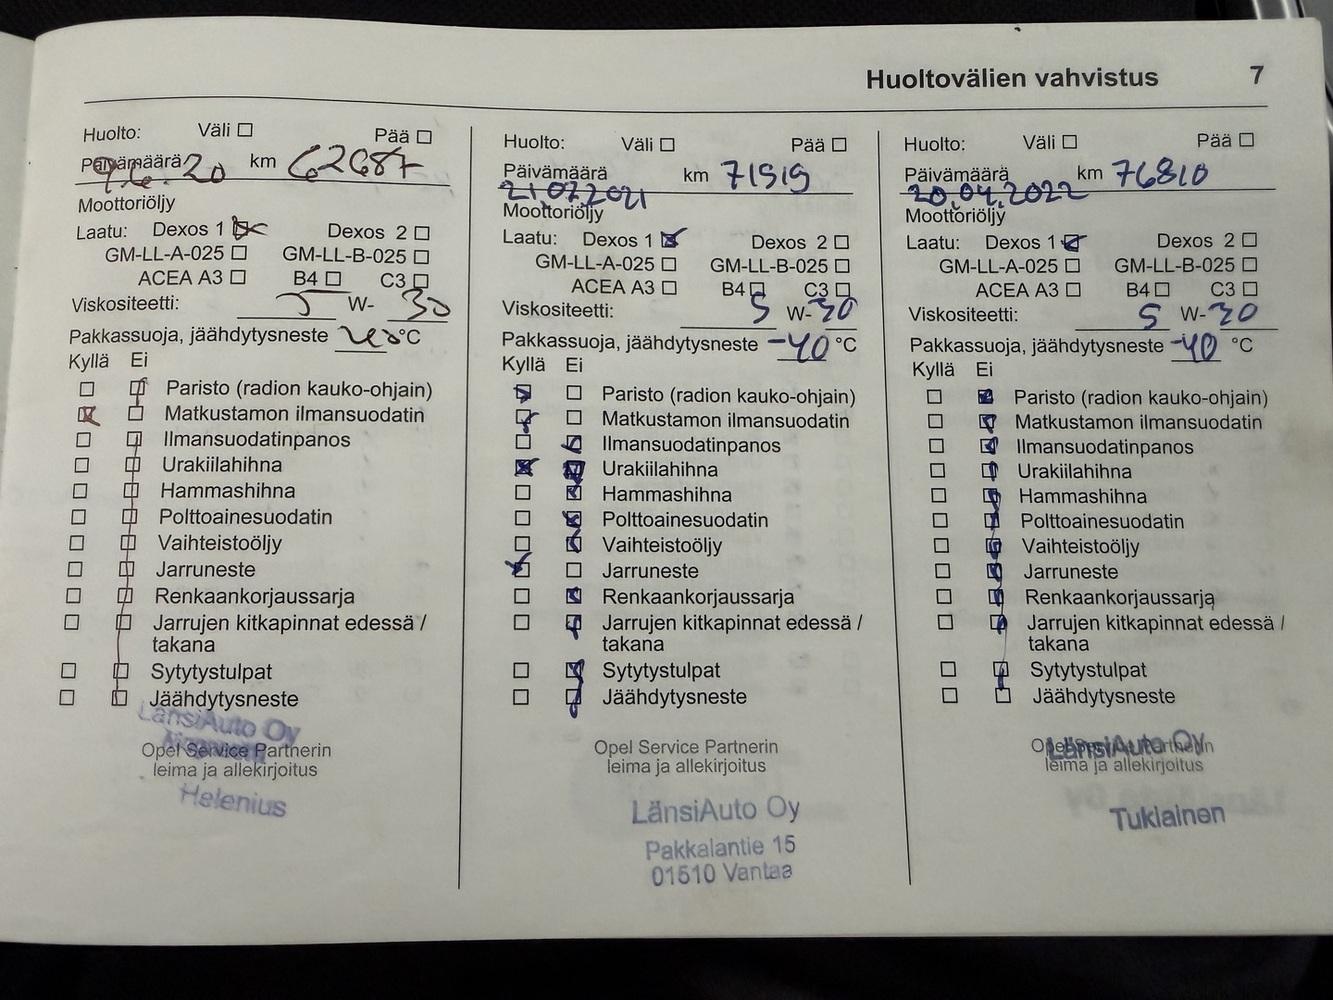 Huoltovälien vahvistus 7
Huolto: Väli Pää
Päivämäärä 9.6.20 km 62687
Moottoriöljy
Laatu: Dexos 1 Dexos 2
GM-LL-A-025 GM-LL-B-025
ACEA A3 B4 C3
Viskositeetti: 5 W- 30
Pakkassuoja, jäähdytysneste °C
Kyllä Ei
Paristo (radion kauko-ohjain)
Matkustamon ilmansuodatin
Ilmansuodatinpanos
Urakiilahihna
Hammashihna
Polttoainesuodatin
Vaihteistoöljy
Jarruneste
Renkaankorjaussarja
Jarrujen kitkapinnat edessä /
takana
Sytytystulpat
Jäähdytysneste
LänsiAuto Oy
Opel Service Partnerin
leima ja allekirjoitus
Helenius
Huolto: Väli Pää
Päivämäärä km 71919
21.07.2021
Moottoriöljy
Laatu: Dexos 1 Dexos 2
GM-LL-A-025 GM-LL-B-025
ACEA A3 B4 C3
Viskositeetti: 5 W-30
Pakkassuoja, jäähdytysneste -40 °C
Kyllä Ei
Paristo (radion kauko-ohjain)
Matkustamon ilmansuodatin
Ilmansuodatinpanos
Urakiilahihna
Hammashihna
Polttoainesuodatin
Vaihteistoöljy
Jarruneste
Renkaankorjaussarja
Jarrujen kitkapinnat edessä /
takana
Sytytystulpat
Jäähdytysneste
Opel Service Partnerin
leima ja allekirjoitus
LänsiAuto Oy
Pakkalantie 15
01510 Vantaa
Huolto: Väli Pää
Päivämäärä km 76810
20.04.2022
Moottoriöljy
Laatu: Dexos 1 Dexos 2
GM-LL-A-025 GM-LL-B-025
ACEA A3 B4 C3
Viskositeetti: 5 W-30
Pakkassuoja, jäähdytysneste -40 °C
Kyllä Ei
Paristo (radion kauko-ohjain)
Matkustamon ilmansuodatin
Ilmansuodatinpanos
Urakiilahihna
Hammashihna
Polttoainesuodatin
Vaihteistoöljy
Jarruneste
Renkaankorjaussarja
Jarrujen kitkapinnat edessä /
takana
Sytytystulpat
Jäähdytysneste
Opel Service Partnerin
LänsiAuto Oy
leima ja allekirjoitus
Tukiainen